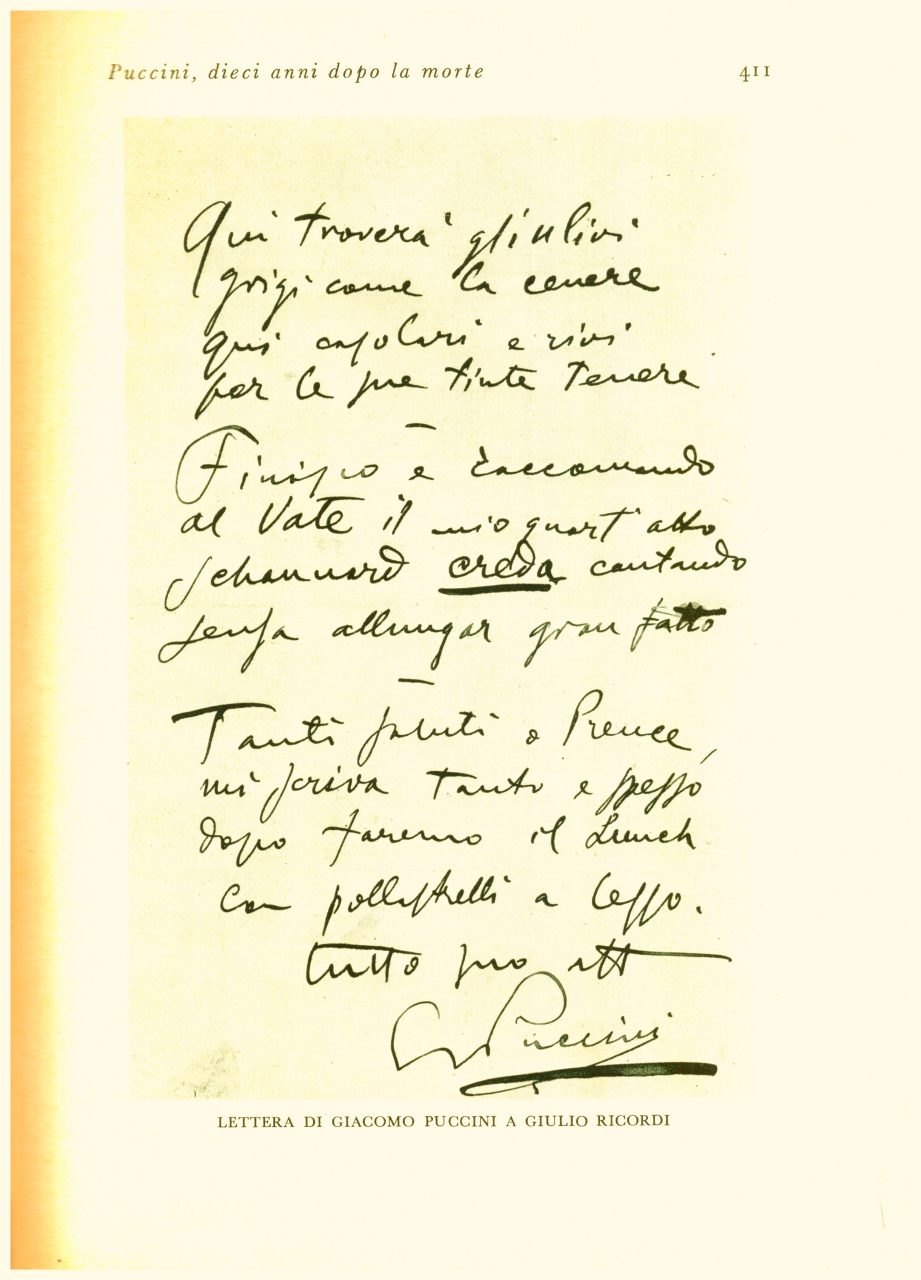 Puccini, dieci anni dopo la morte 411
Qui troverà gli ulivi
grigi come la cenere
qui casolari e rivi
per le sue tinte tenere
Finisco e raccomando
al Vate il mio quart'atto
Schaunard creda cantando
senza allungar gran fatto
Tanti saluti o Prence,
mi scriva tanto e spesso
dopo faremo il Lunch
con pollastrelli a lesso.
tutto suo att
G Puccini
LETTERA DI GIACOMO PUCCINI A GIULIO RICORDI